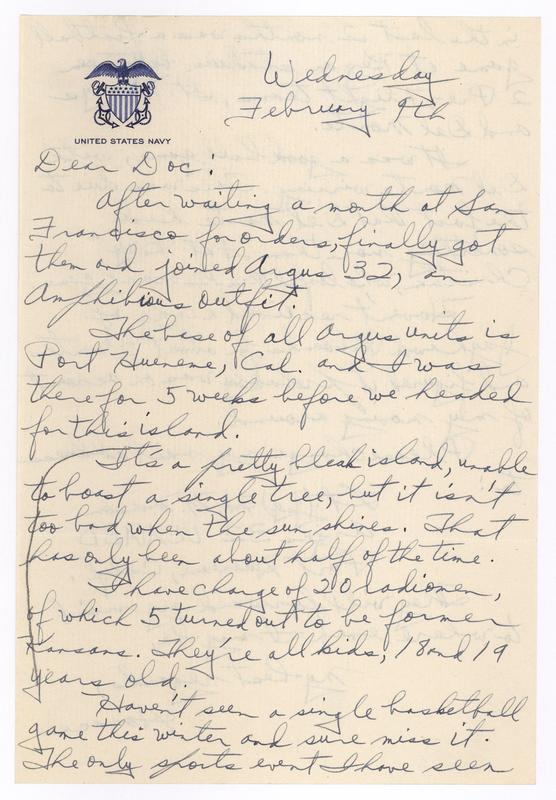 UNITED STATES NAVY
Wednesday
February 9th
Dear Doc:
After waiting a month at San
Francisco for orders, finally got
them and joined Argus 32, an
Amphibious outfit.
The base of all Argus units is
Port Hueneme, Cal. and I was
there for 5 weeks before we headed
for this island.
It's a pretty bleak island, unable
to boast a single tree, but it isn't
too bad when the sun shines. That
has only been about half of the time.
I have charge of 20 radiomen,
of which 5 turned out to be former
Kansans. They're all kids, 18 and 19
years old.
Haven't seen a single basketball
game this winter and sure miss it.
The only sports event I have seen